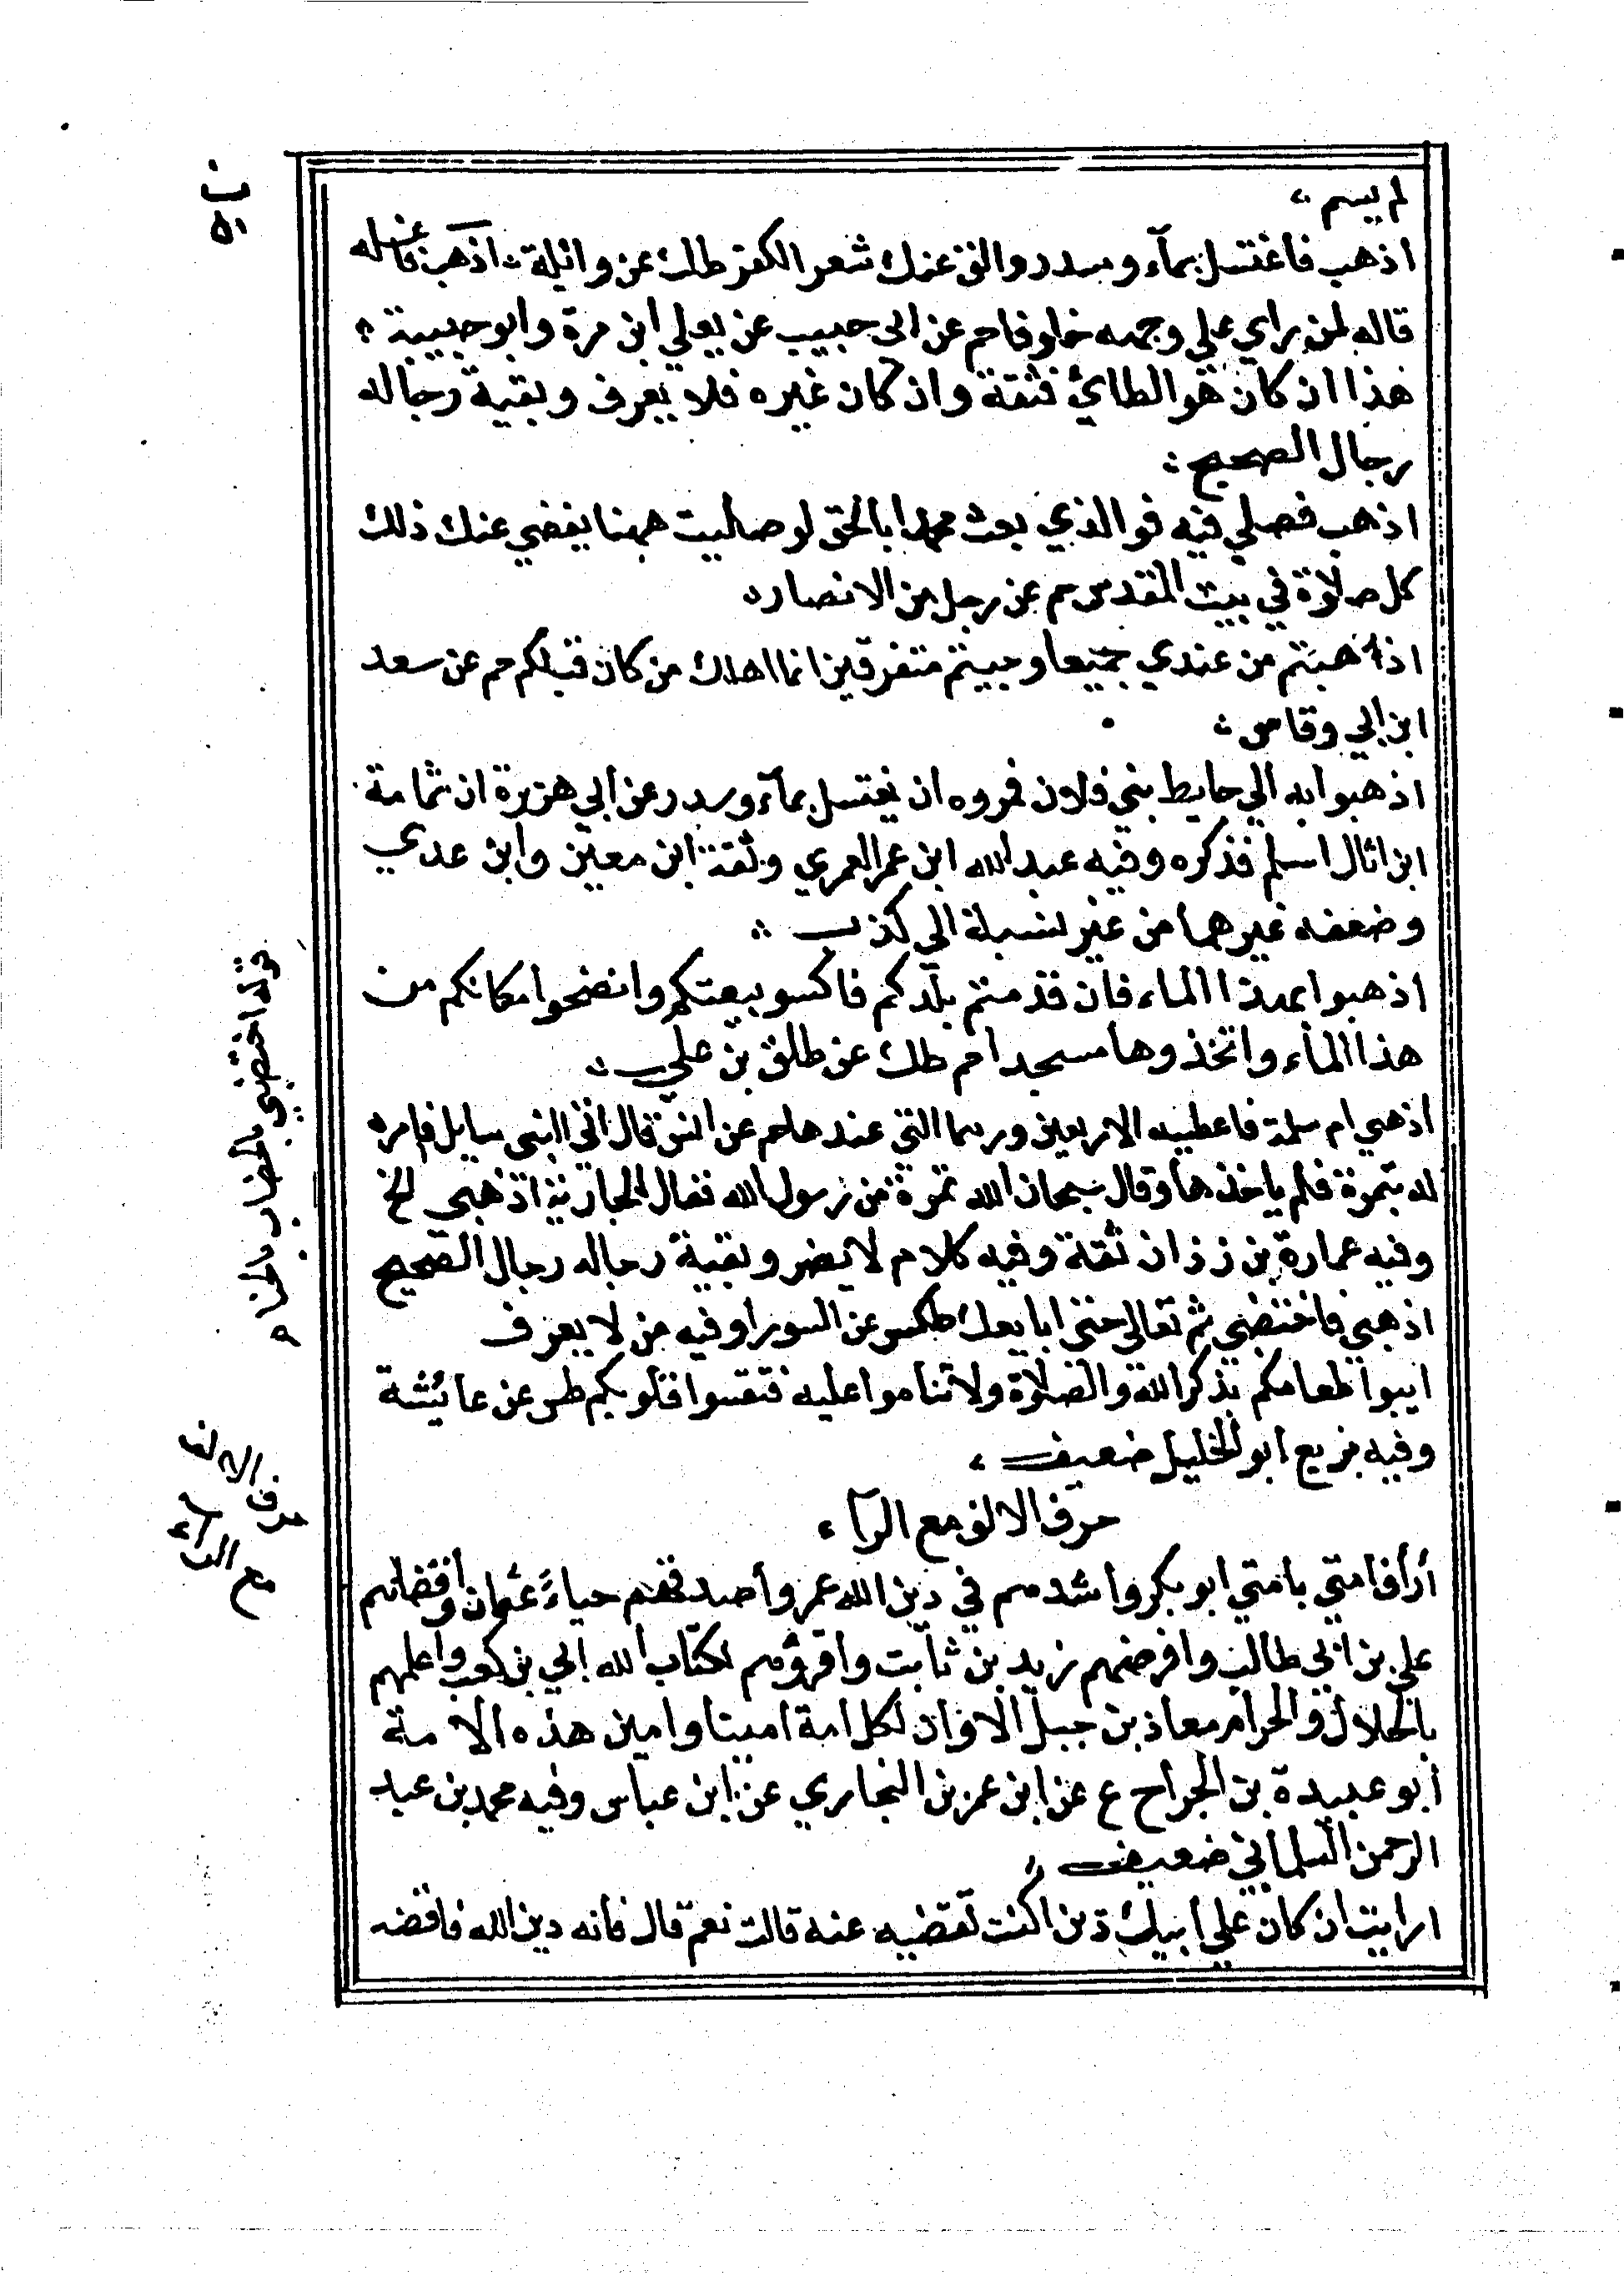 لم يسم ؞
اذهب فاغتسل بمآء وسدر والق عنك شعر الكفر طك عن واثلة ؞ اذهب فاغسله
قاله لمن راي علي وجهه خلوقا حم عن ابي حبيب عن يعلي ابن مرة وابو حبيبة ؞
هذا ان كان هو الطائي فثقة وان كان غيره فلا يعرف وبقية رجاله
رجال الصحيح ؞
اذهب فصلي فيه فوالذي بعث محمدا بالحق لو صليت ههنا يقضي عنك ذلك
كل صلاة في بيت المقدس حم عن رجل من الانصار ؞
اذهبتم من عندي جميعا وجيتم متفرقين انما اهلك من كان قبلكم حم عن سعد
ابن ابي وقاص ؞
اذهبوا به الي حايط بني فلان فمروه ان يغتسل بمآء وسدر عن ابي هريرة ان ثمامة
ابن اثال اسلم فذكره وفيه عبد الله ابن عمر العمري وثقه ابن معين وابن عدي
وضعفه غيرهما من غير نسبة الى كذب ؞
اذهبوا بهذا الماء فان قدمتم بلدكم فاكسو بيعتكم وانضحوا مكانكم من
هذا الماء واتخذوها مسجدا م طك عن طلق بن علي ؞
اذهبي ام سلمة فاعطيه الاربعين درهما التي عندها حم عن انس قال اتى النبى سايل فامر
له بتمرة فلم ياخذها وقال سبحان الله تمرة من رسول الله فقال للجارية اذهبي الخ
وفيه عمارة بن زذان ثقة وفيه كلام لا يضر وبقية رجاله رجال الصحيح
اذهبي فاختضبي ثم تعالي حتى ابايعك طكس عن السورا وفيه من لا يعرف
ايبوا طعامكم بذكر الله والصلاة ولا تناموا عليه فتقسوا قلوبكم طس عن عايشة
وفيه بزيع ابو الخليل ضعيف ؞
حرف الالف مع الرآء
أرأف امتي بامتي ابو بكر واشدهم في دين الله عمر وأصدقهم حياءً عثمان واقضاهم
علي بن ابي طالب وافرضهم زيد بن ثابت واقرؤهم لكتاب الله ابي بن كعب واعلمهم
بالحلال والحرام معاذ بن جبل الا وان لكل امة امينا وامين هذه الامة
أبو عبيدة بن الجراح ع عن ابن عمر بن النجاري عن ابن عباس وفيه محمد بن عبد
الرحمن السلماني ضعيف ؞
ارايت ان كان علي أبيك دين اكنت تقضيه عنه قالت نعم قال فانه دين الله فاقضه
قوله اختضبي بالخضاب بالحنا م
حرف الالف
مع الراء